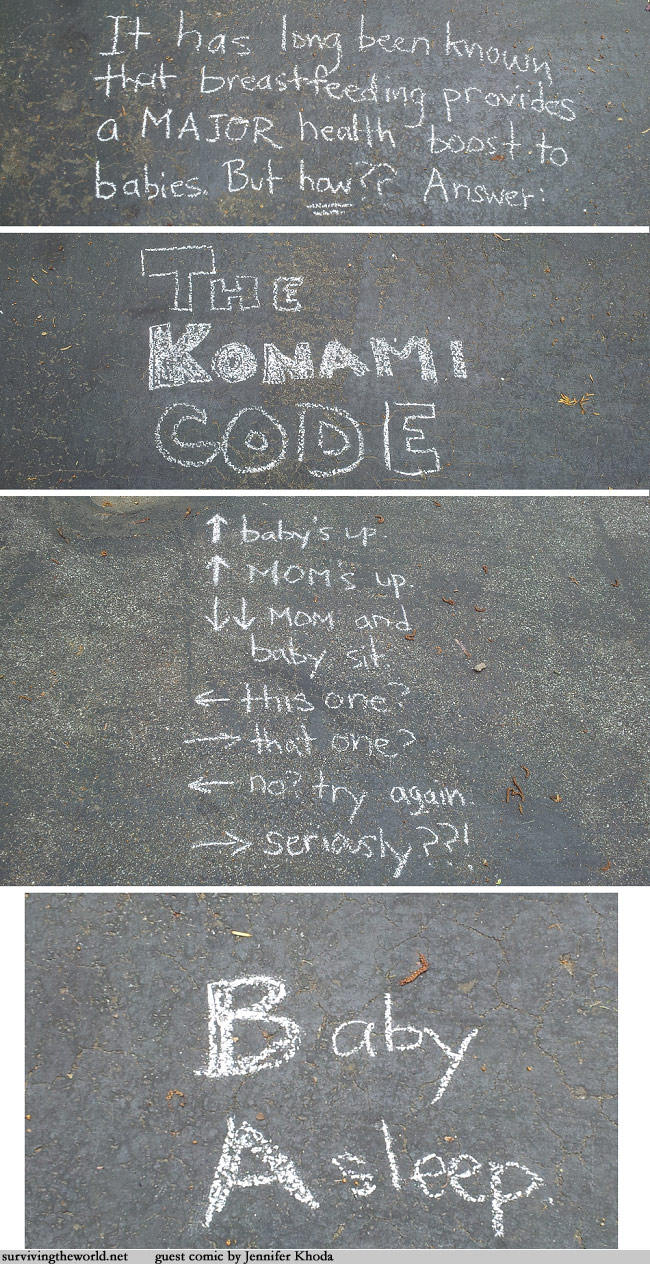 It has long been known
that breastfeeding provides
a MAJOR health boost to
babies. But how?? Answer:
THE
KONAMI
CODE
↑ baby's up.
↑ MOM's up.
↓↓ MOM and
baby sit.
← this one?
→ that one?
← no? try again.
→ seriously??!
Baby
Asleep.
survivingtheworld.net guest comic by Jennifer Khoda